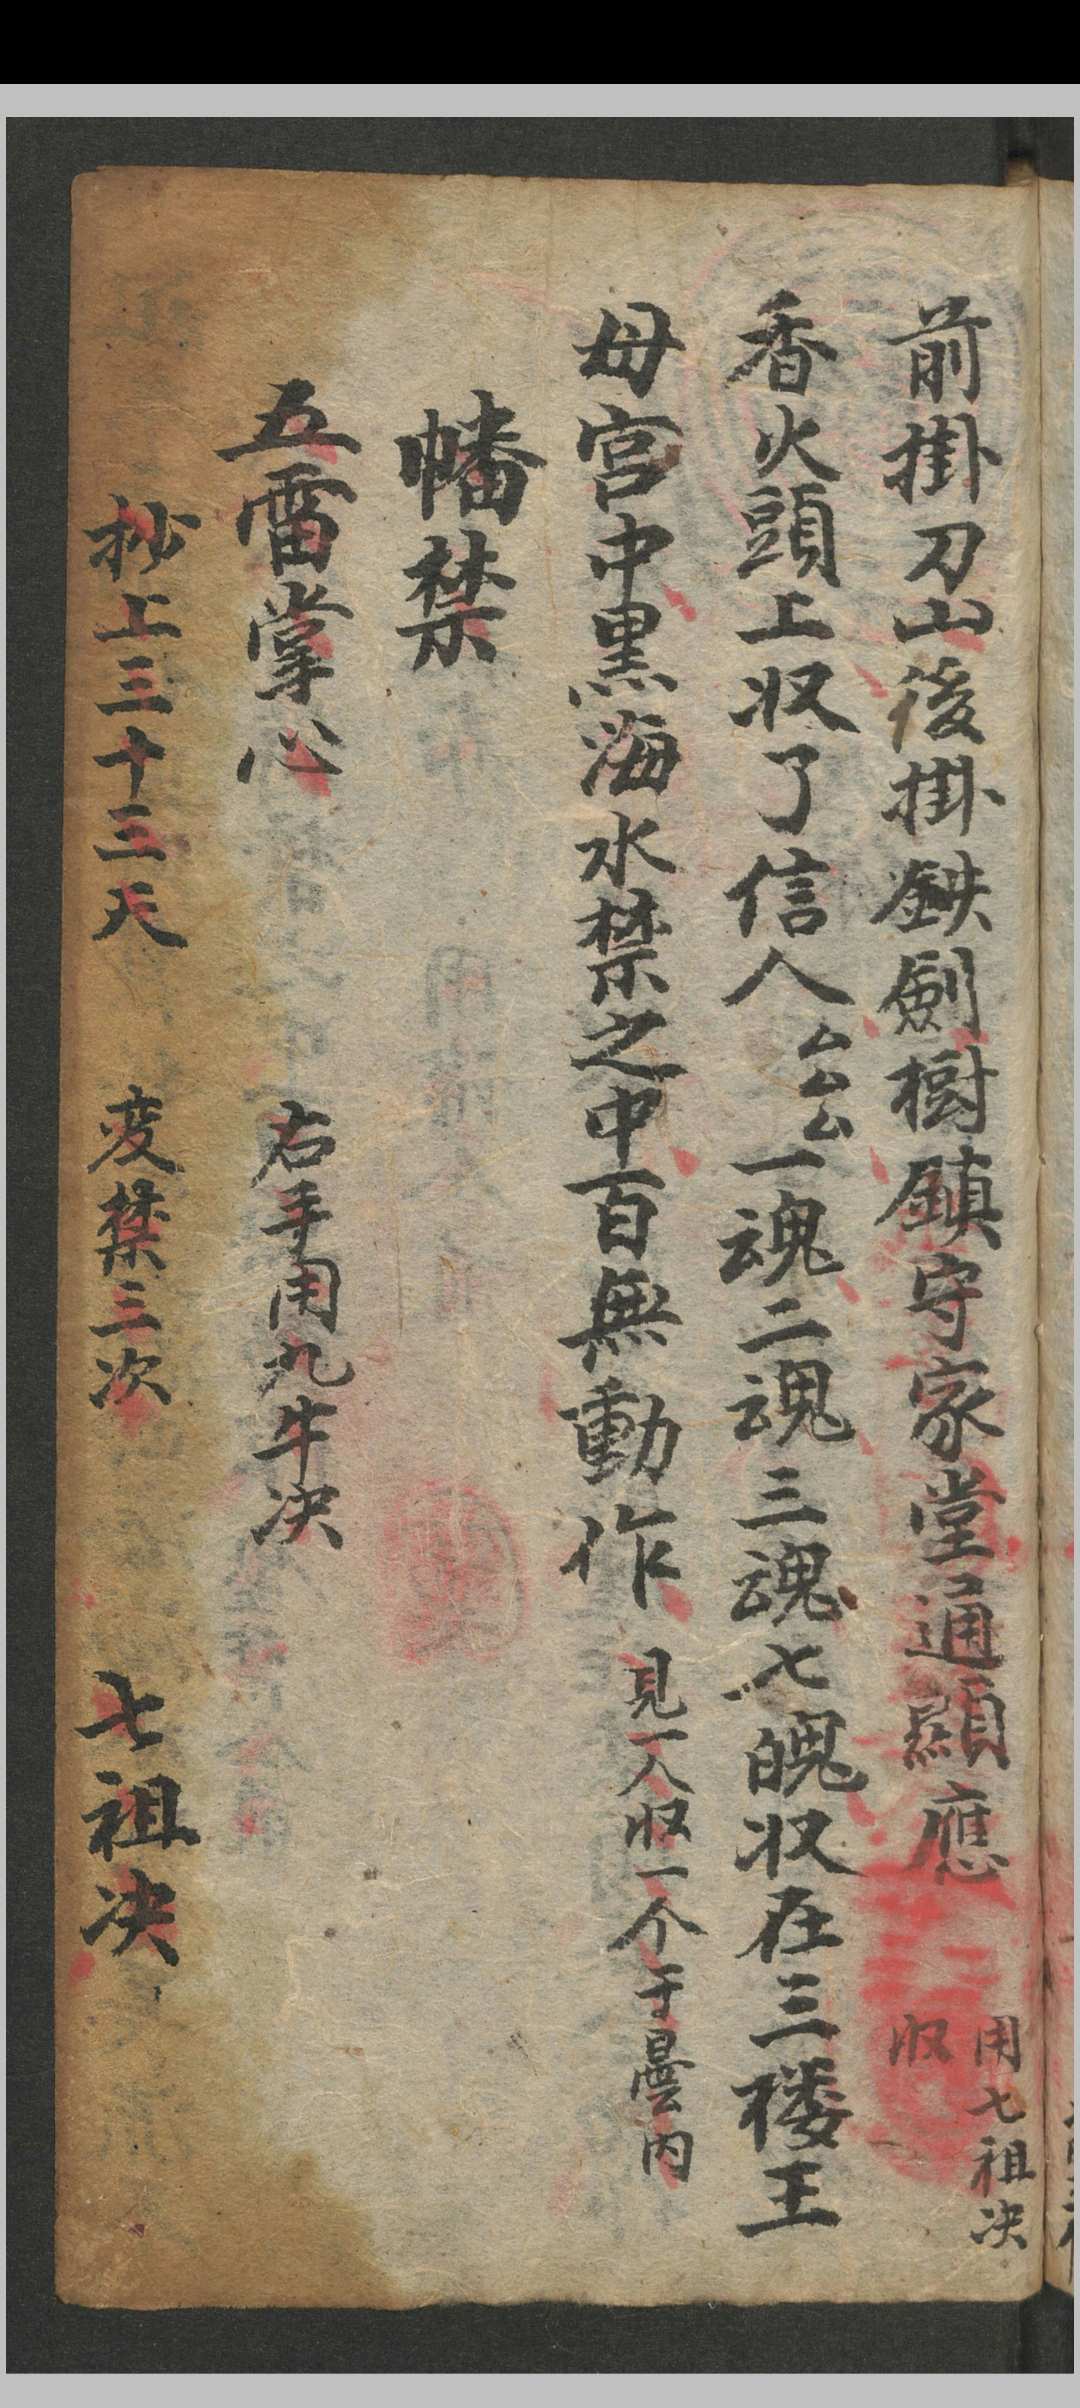 前掛刀山後掛鉄劍樹鎮守家堂通顕應 用七祖决
収
香火頭上収了信人厶厶厶一魂二魂三魂七魄収在三楼王
母宫中黑海水禁之中百無動作 見一人収一个于曇内
幡禁
五雷掌心 右手用九牛决
抄上三十三天 変禁三次 七祖决